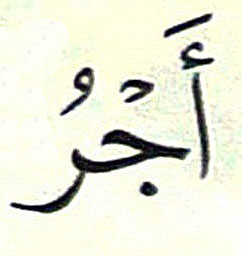 أَجْرُ